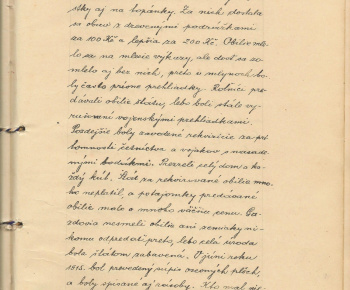 stky aj na topánky. Za nich dostala
sa obuv s drevenými podrážkami
za 100 Kč a lepšia za 200 Kč. Obilie mle-
lo sa na mlecie výkazy, ale dosť sa so-
mlelo aj bez nich, preto v mlynoch bo-
ly často prísne prehliadky. Roľníci pre-
dávali obilie štátu, lebo boli stále vy-
rušovaní vojenskými prehliadkami.
Pozdejšie boly zavedené rekvizície za prí-
tomnosti žetníctva a vojakov s nasade-
nými bodákmi. Prezreli celý dom a ka-
ždý kút. Štát za rekvirované obilie mno-
ho neplatil, a potajomky predávané
obilie malo o mnoho väčšiu cenu. Ga-
zdovia nesmeli obilie ani zemiaky ni-
komu odpredať preto, lebo celá úroda
bola štátom zabavená. V zime roku
1915. bol prevedený súpis osevných plôch,
a boly spísané aj zásoby. Kto mal vie-